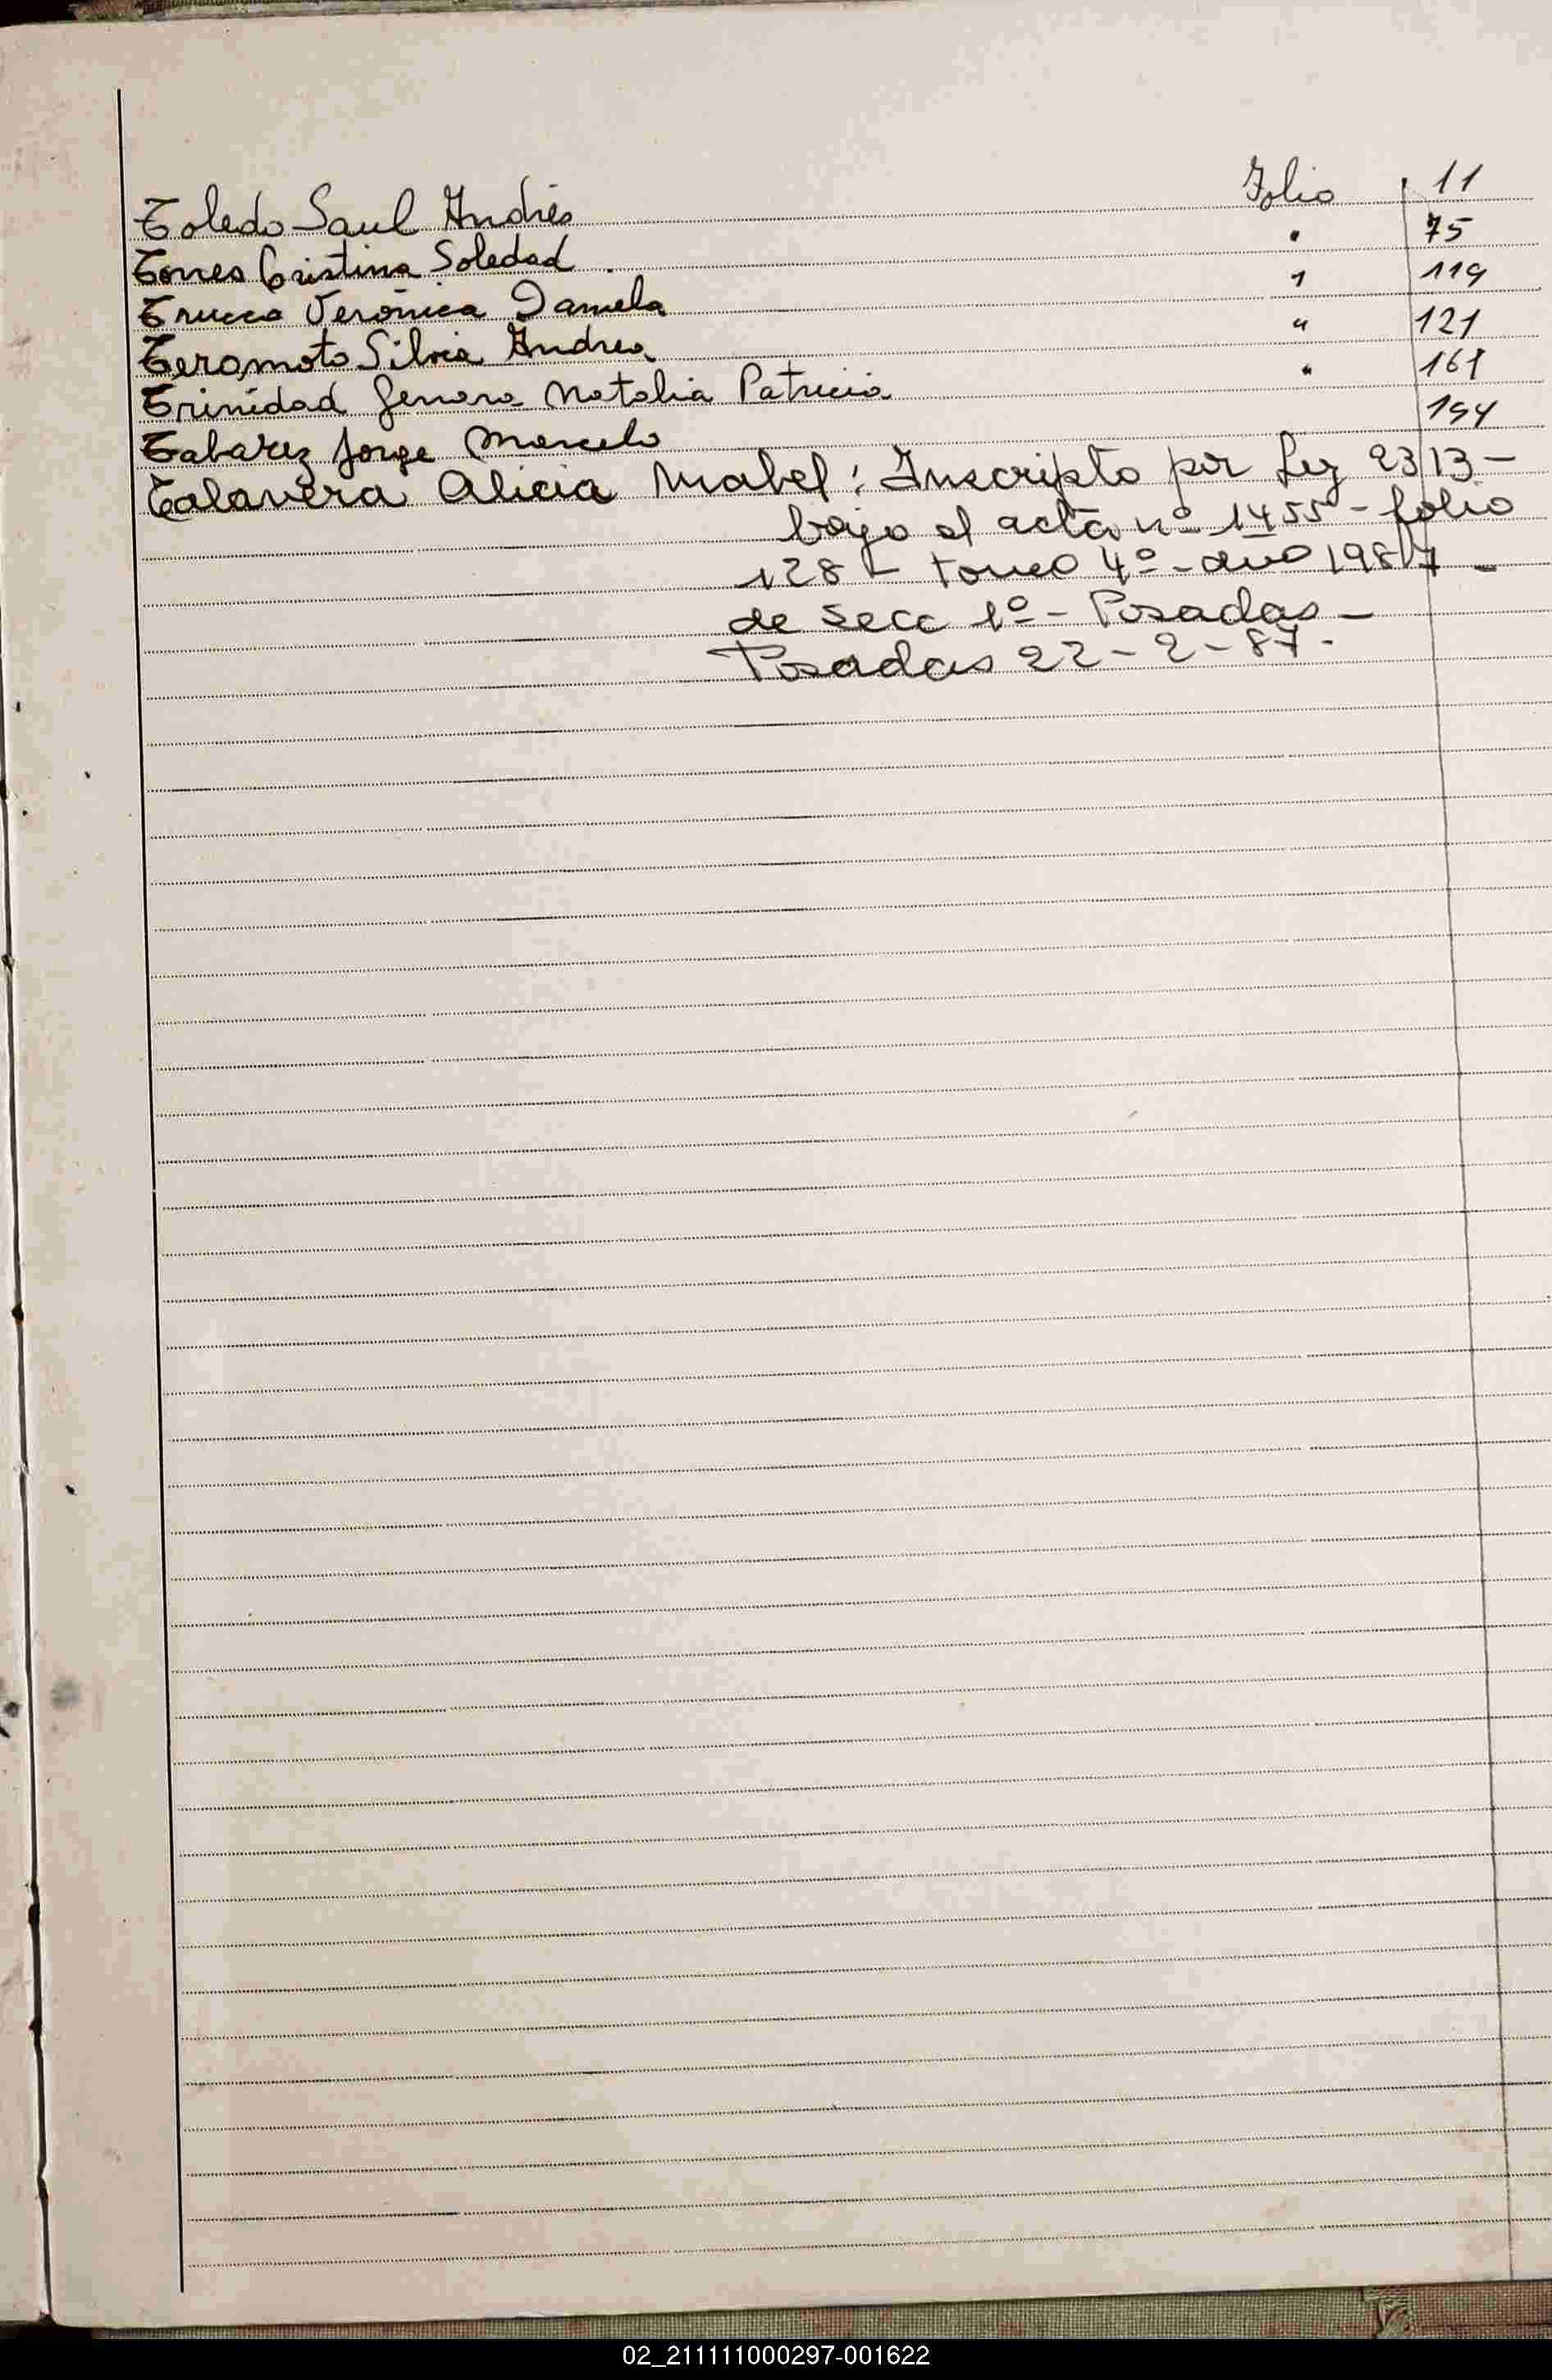 Toledo Saul Andrés Folio 11
Torres Cristina Soledad . " 75
Trucco Verónica Daniela " 119
Teramoto Silvia Andrea " 121
Trinidad Genara Natalia Patricia " 161
Tabarez Jorge Marcelo 194
Talavera Alicia Mabel: Inscripto por Ley 2313-
bajo el acta nº 1455 - folio
128 - tomo 4º - año 1987 -
de Secc 1º - Posadas -
Posadas 22-2-87.
02_211111000297-001622